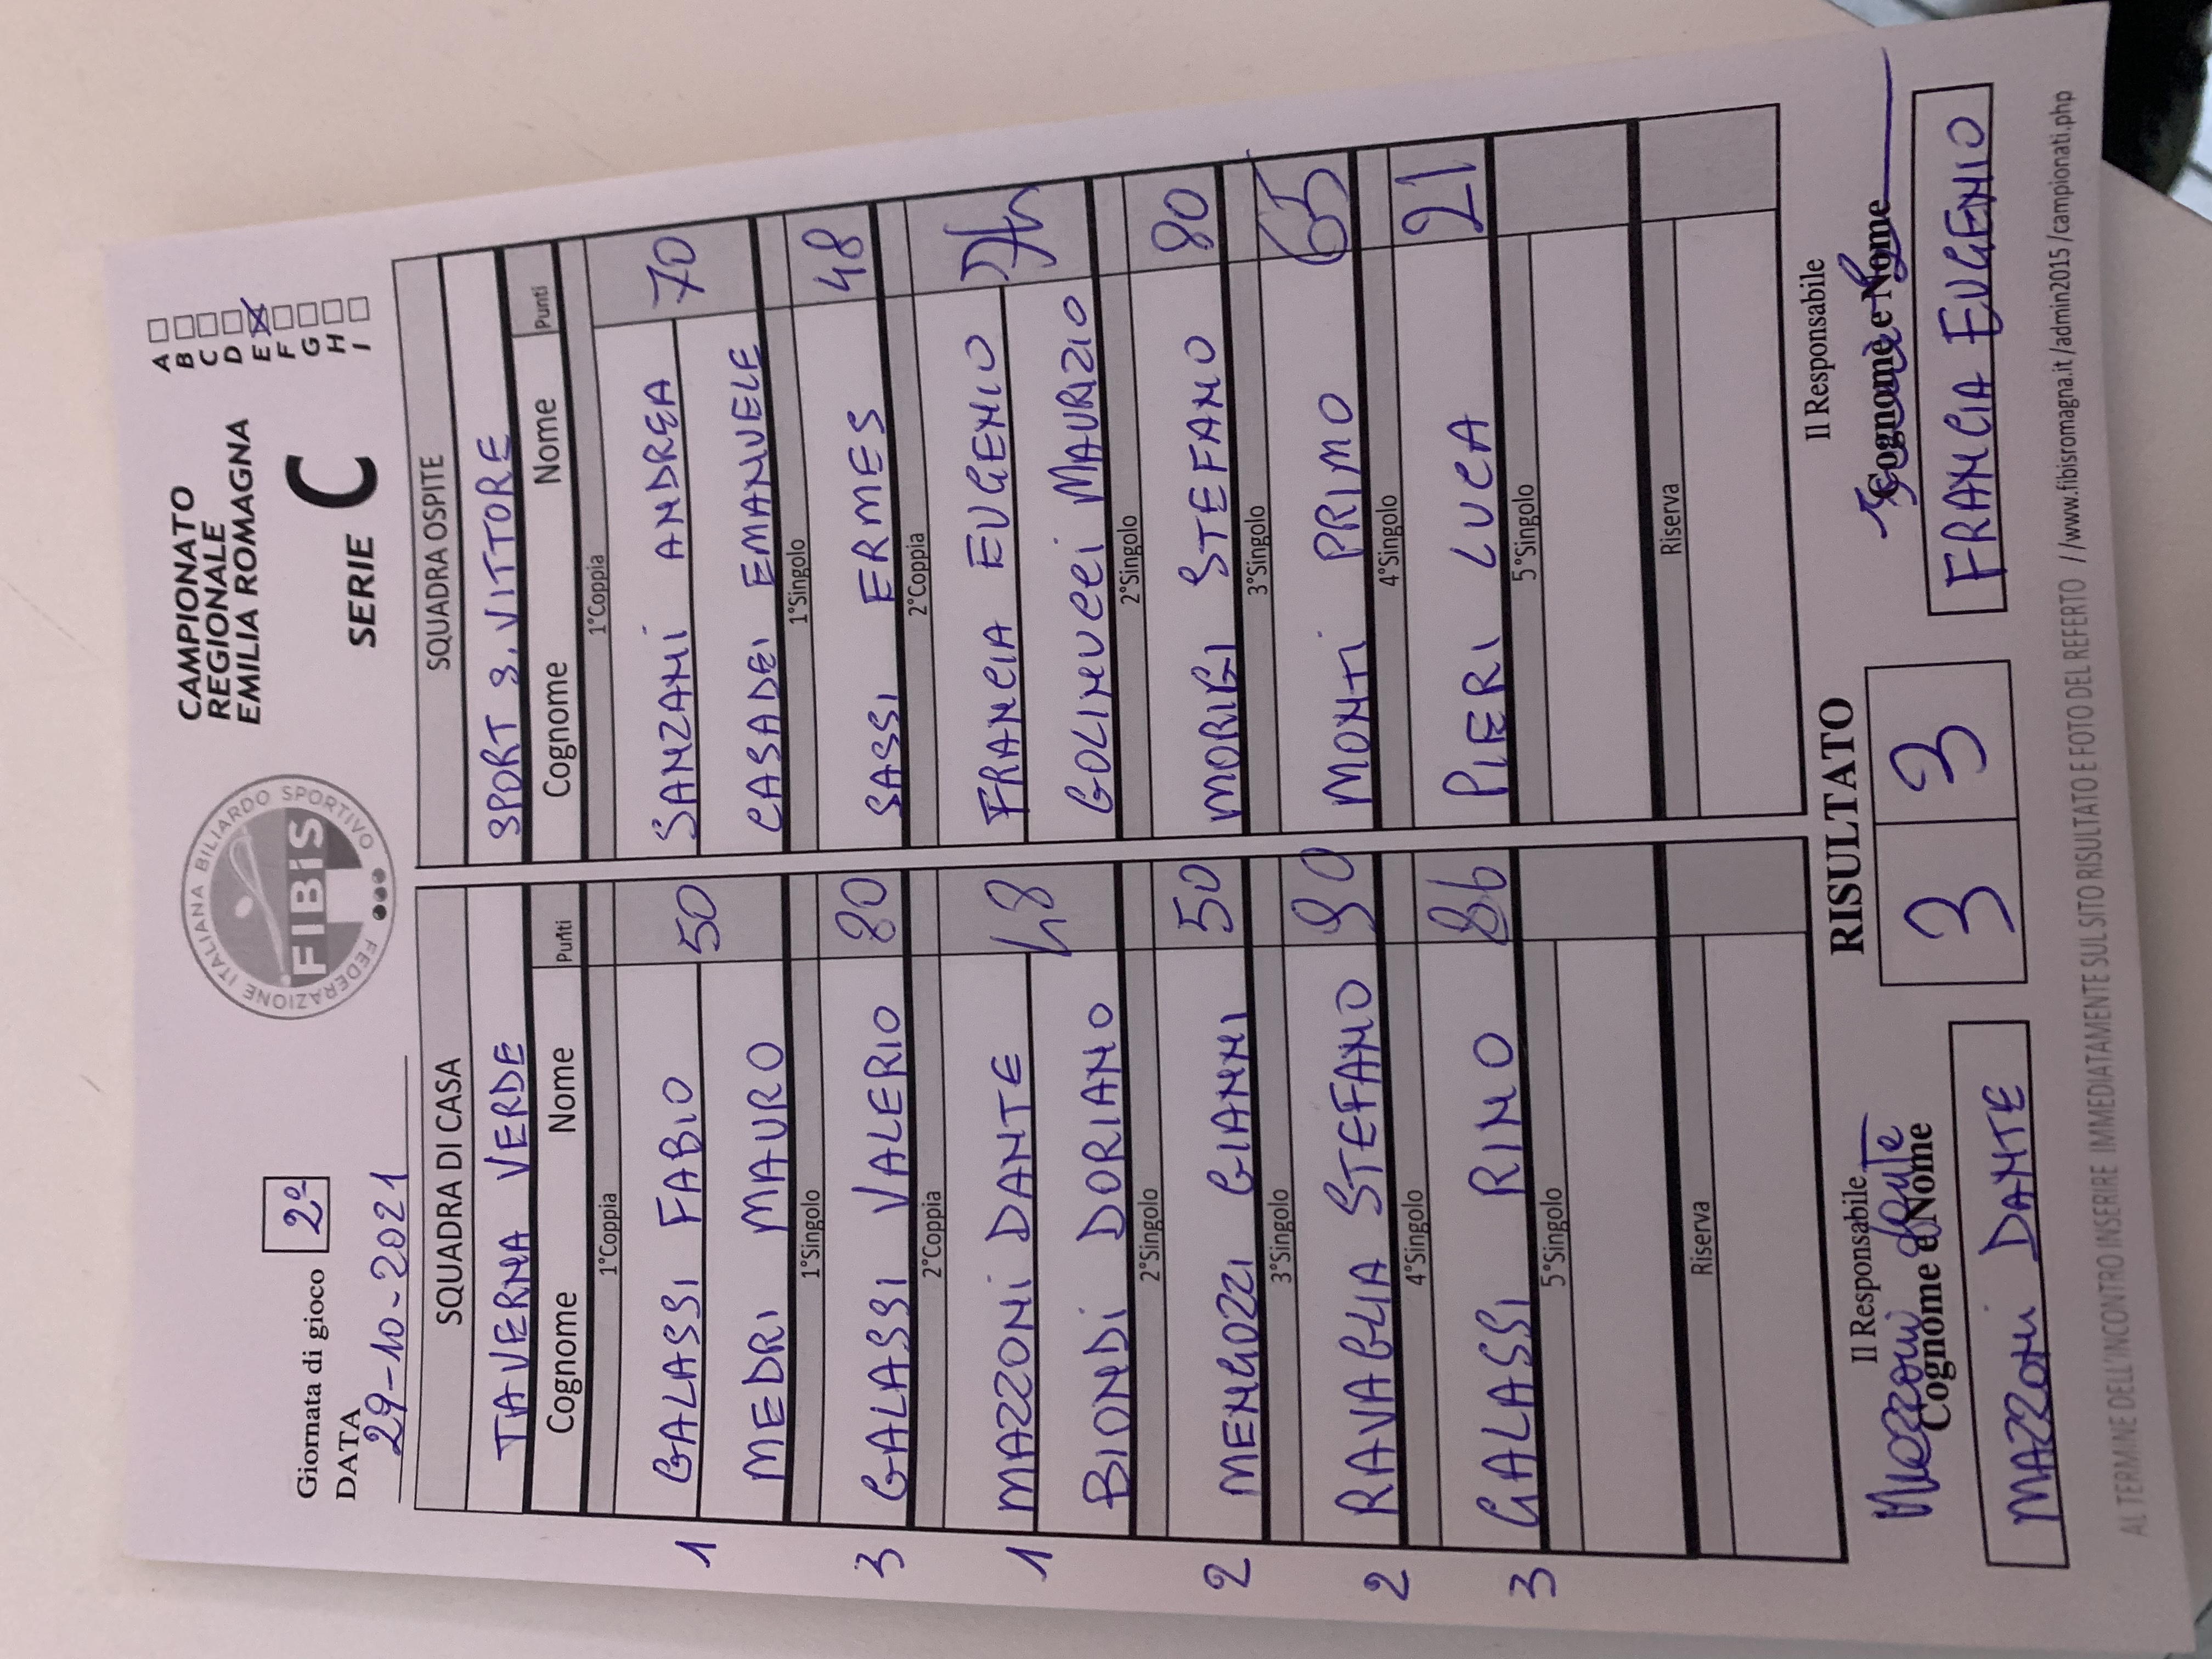 Giornata di gioco 2º
DATA
29-10-2021
FEDERAZIONE ITALIANA BILIARDO SPORTIVO
FIBiS
CAMPIONATO
REGIONALE
EMILIA ROMAGNA
SERIE C
A
B
C
D
E X
F
G
H
I
SQUADRA DI CASA
TAVERNA VERDE
Cognome Nome Punti
1°Coppia
GALASSI FABIO 50
MEDRI MAURO
1°Singolo
GALASSI VALERIO 80
2°Coppia
MAZZONI DANTE 48
BIONDI DORIANO
2°Singolo
MENGOZZI GIANNI 50
3°Singolo
RAVAGLIA STEFANO 90
4°Singolo
GALASSI RINO 86
5°Singolo
Riserva
1
3
1
2
2
3
SQUADRA OSPITE
SPORT S. VITTORE
Cognome Nome Punti
1°Coppia
SANZANI ANDREA 70
CASADEI EMANUELE
1°Singolo
SASSI ERMES 48
2°Coppia
FRANCIA EUGENIO
GOLINUCCI MAURIZIO
2°Singolo
MORIGI STEFANO 80
3°Singolo
MONTI PRIMO 65
4°Singolo
PIERI LUCA 21
5°Singolo
Riserva
Il Responsabile
Mazzoni Dante
Cognome e Nome
MAZZONI DANTE
RISULTATO
3 3
Il Responsabile
Cognome e Nome
FRANCIA EUGENIO
AL TERMINE DELL'INCONTRO INSERIRE IMMEDIATAMENTE SUL SITO RISULTATO E FOTO DEL REFERTO //www.fibisromagna.it/admin2015/campionati.php